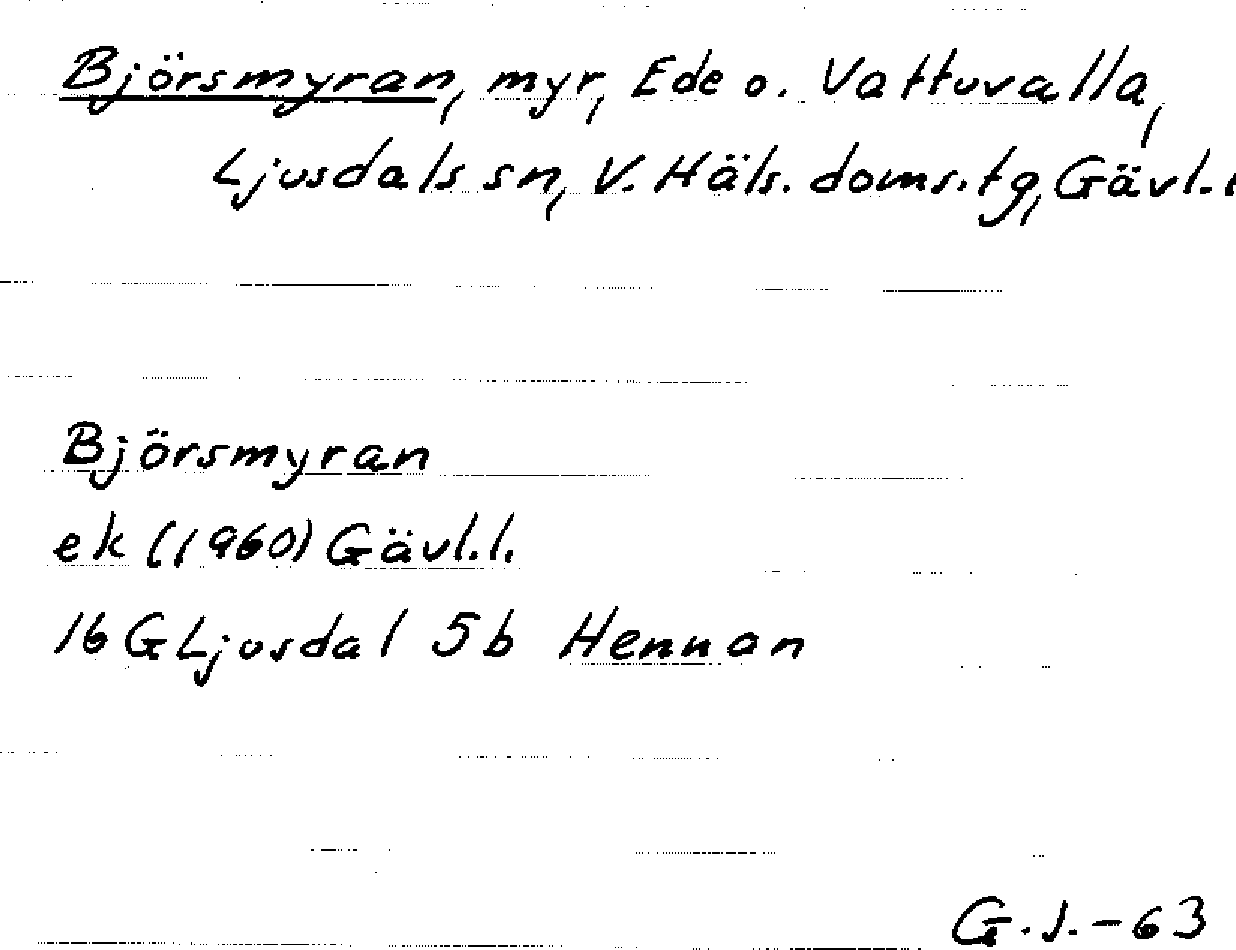 Björsmyran, myr, Ede o. Vattuvalla,
Ljusdals sn, V. Häls. doms.tg, Gävl.l
Björsmyran
ek (1960) Gävl.l.
16 G Ljusdal 5b Hennan
G.J.-63